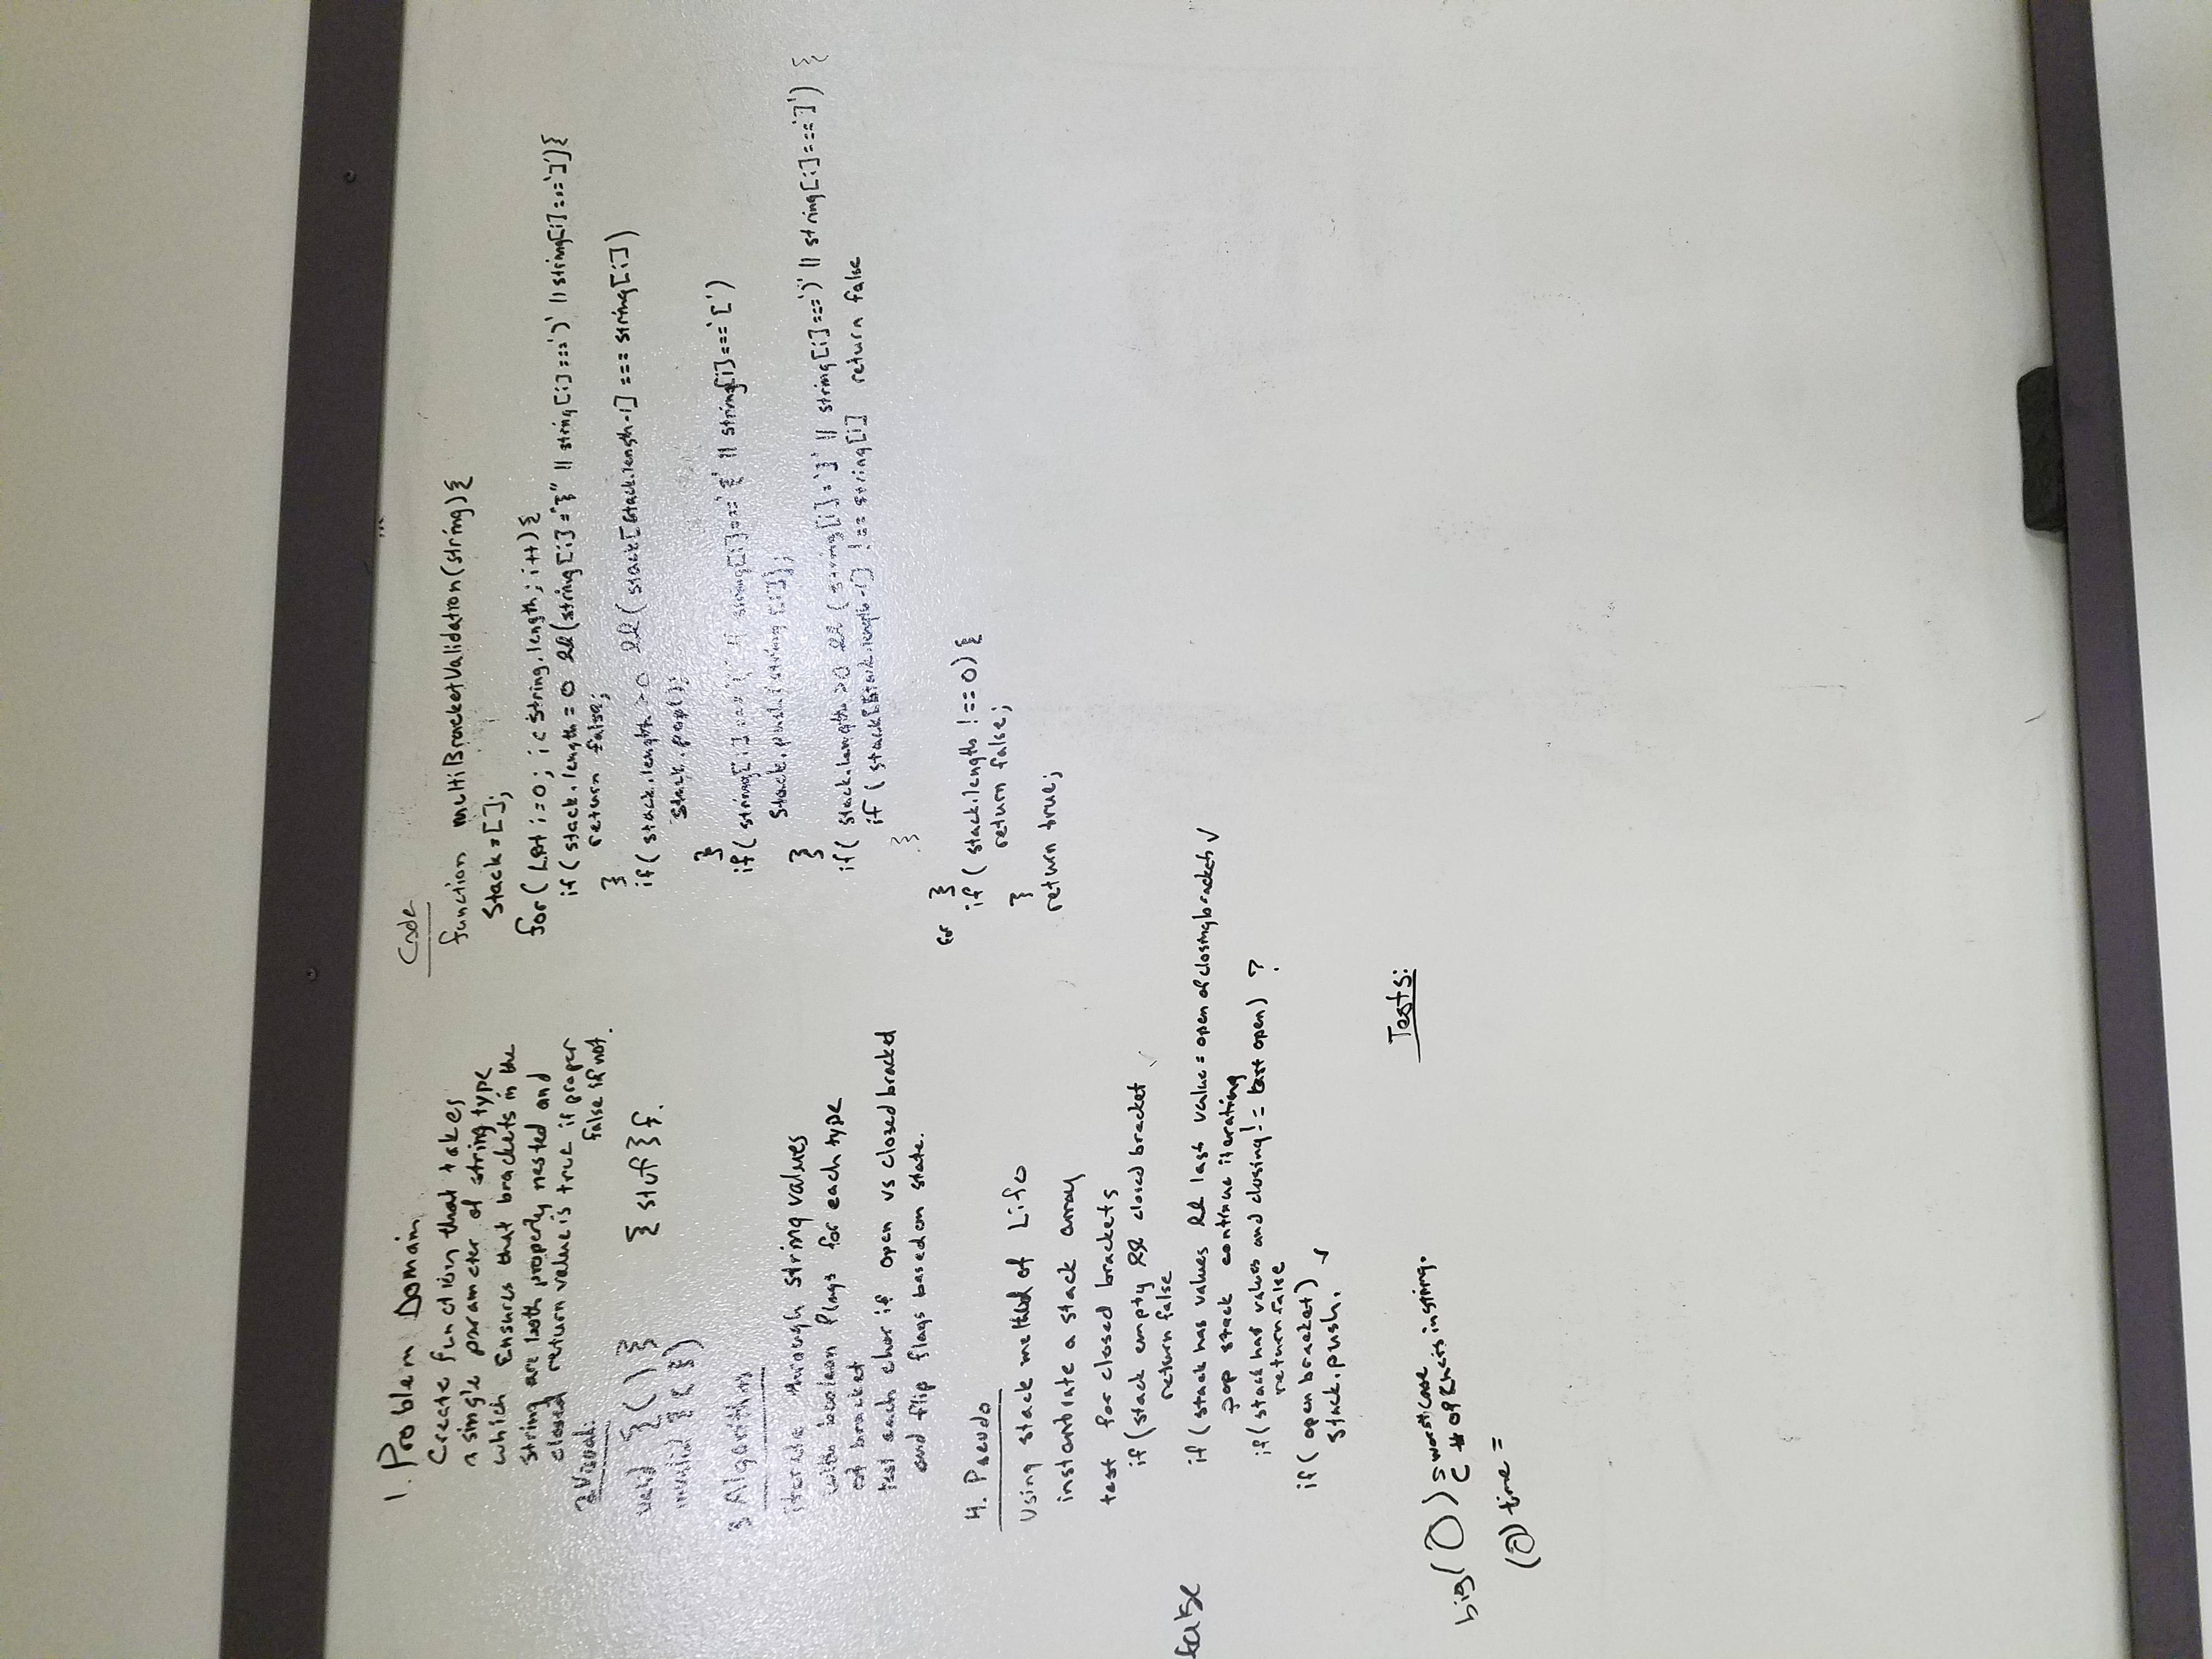 1. Problem Domain
Create function that takes
a single parameter of string type
which Ensures that brackets in the
string are both properly nested and
closed return value is true if proper
false if not.
2 Visual:
valid {( )}
{ stuf } f.
invalid { ( } )
3 Algorithms
iterate through string values
with boolean flags for each type
of bracket
test each char if open vs closed bracket
and flip flags based on state.
4. Pseudo
Using stack method of Lifo
instantiate a stack array
test for closed brackets
if (stack empty && closed bracket
return false
false
if (stack has values && last value = open of closing brackets ✓
pop stack continue iterating
if (stack has values and closing != last open) ?
return false
if ( open bracket)
stack.push. ✓
big(O) worst case
# of chars in string.
(O) time =
Code
function multiBracketValidation(string){
Stack = [ ];
for ( Let i = 0; i < string.length; i++) {
if ( stack.length = 0 && (string[i] = "}" || string[i] === ')' || string[i] === ']'){
return false;
}
if ( stack.length > 0 && ( stack[stack.length-1] === string[i])
stack.pop();
}
if ( string[i] === '(' || string[i] === '{' || string[i] === '[' )
Stack.push(string[i]);
}
if ( stack.length > 0 && ( string[i] = '}' || string[i] === ')' || string[i] === ']') {
if ( stack[stack.length-1] !== string[i] return false
}
for }
if ( stack.length !== 0) {
return false;
}
return true;
Tests: